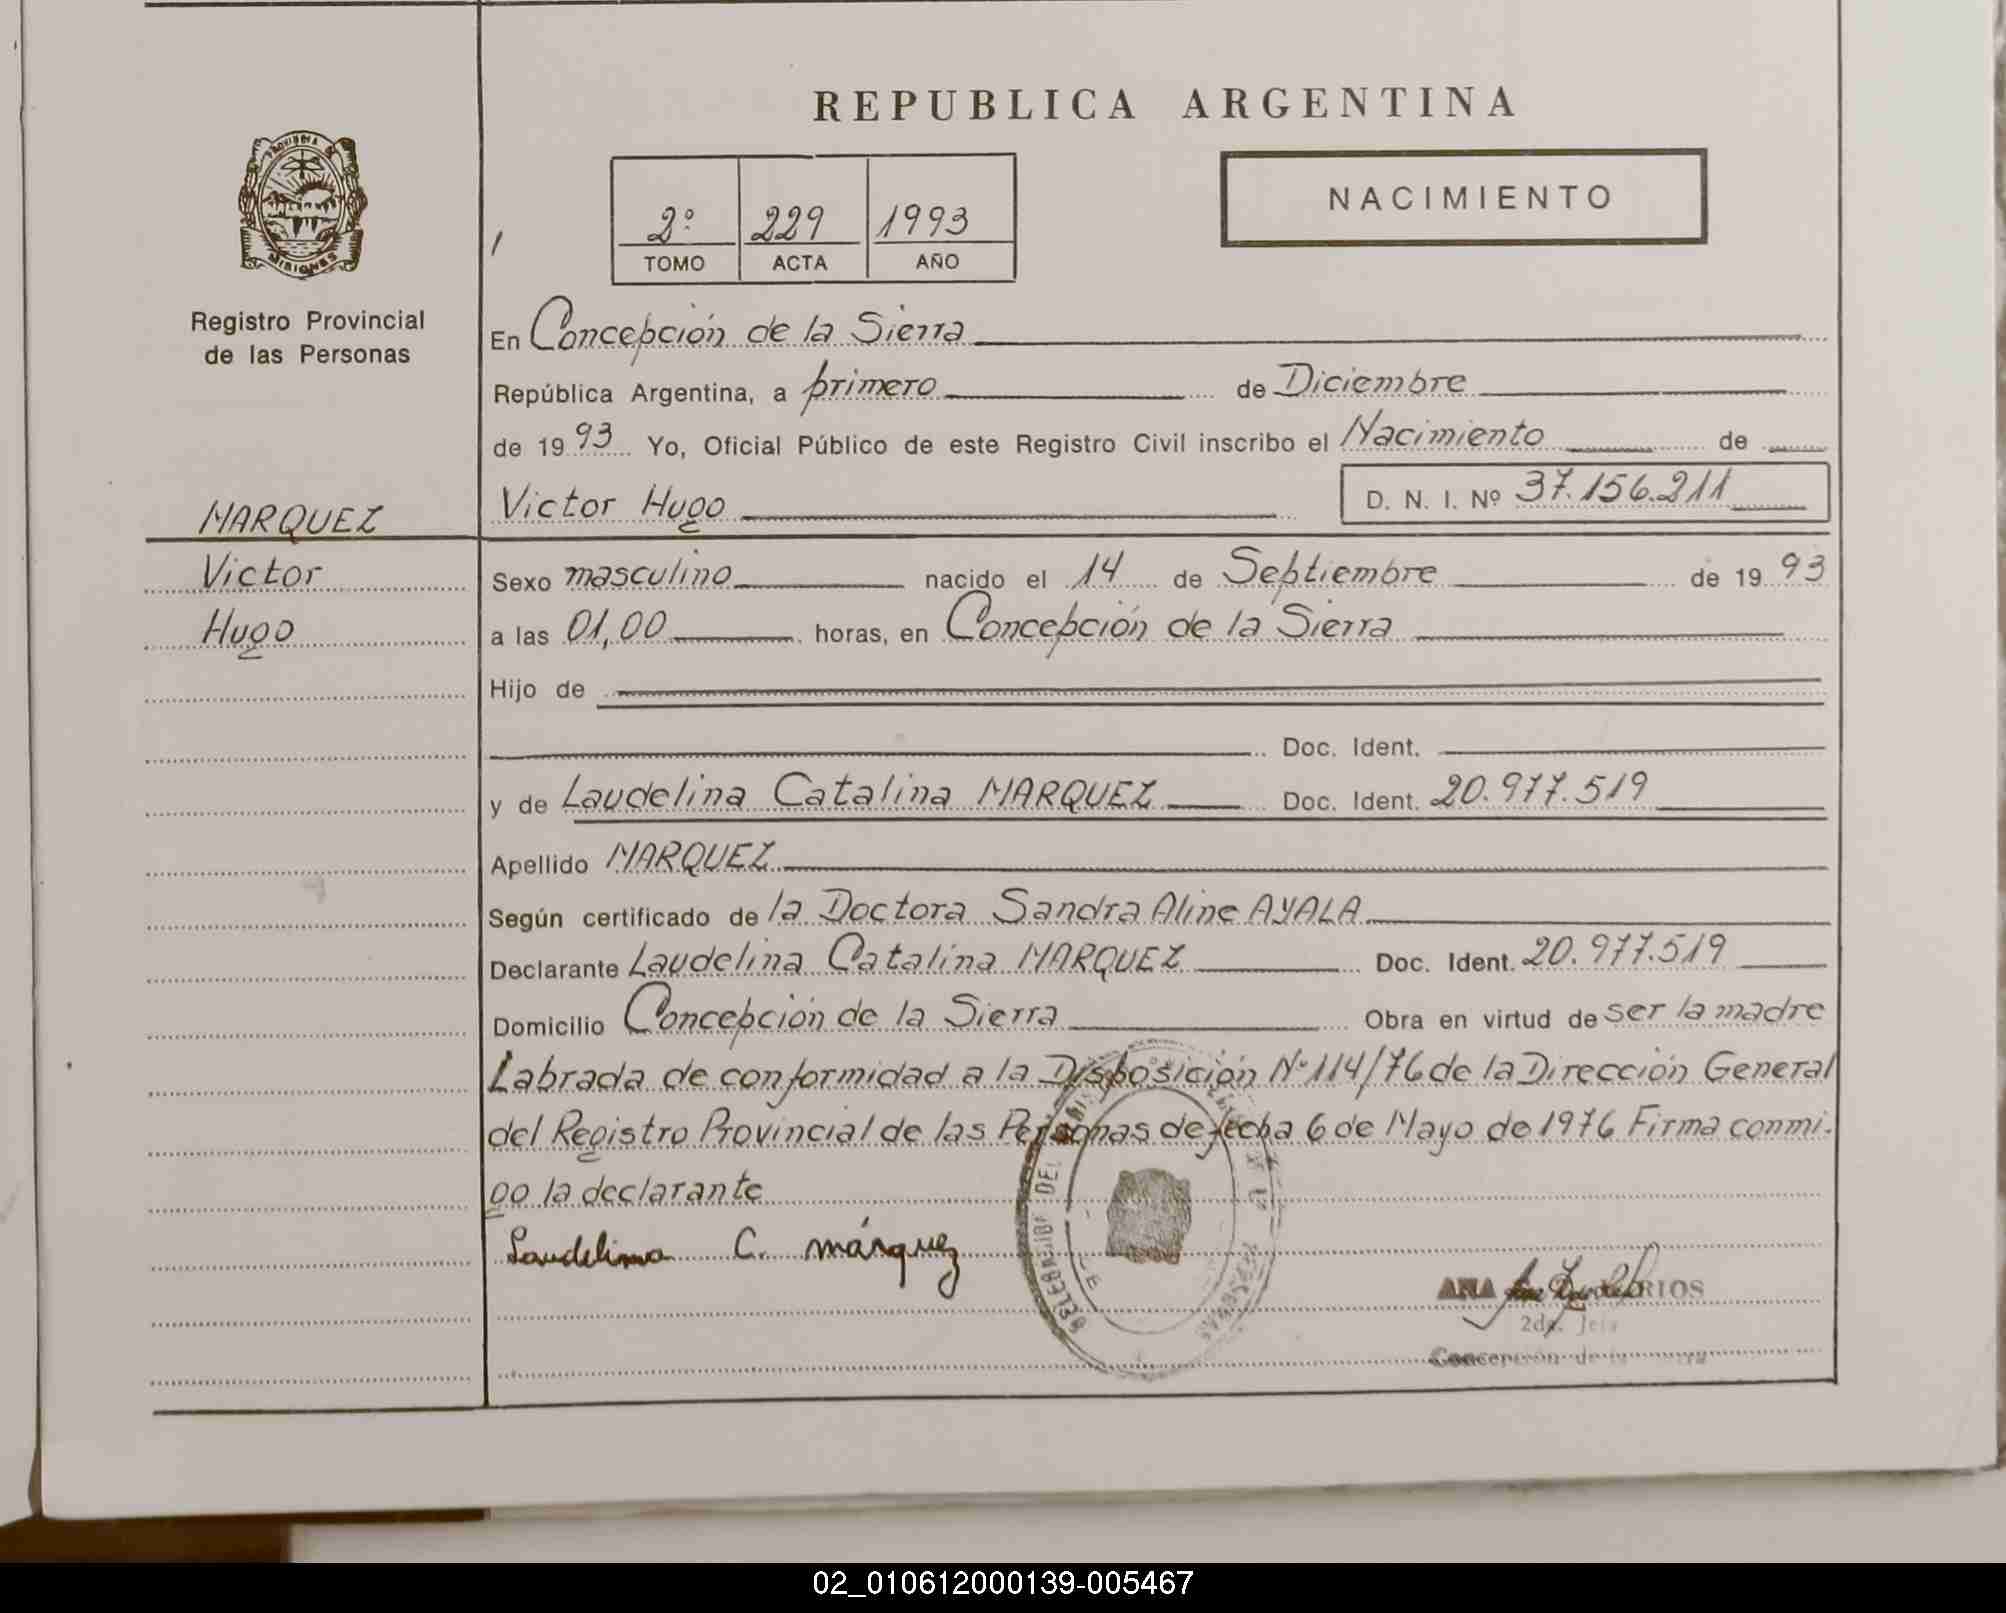 REPUBLICA ARGENTINA
PROVINCIA DE
MISIONES
Registro Provincial
de las Personas
2º 229 1993
TOMO ACTA AÑO
NACIMIENTO
En Concepción de la Sierra
República Argentina, a primero de Diciembre
de 1993 Yo, Oficial Público de este Registro Civil inscribo el Nacimiento de
MARQUEZ
Victor
Hugo
Victor Hugo D. N. I. Nº 37.156.211
Sexo masculino nacido el 14 de Septiembre de 1993
a las 01,00 horas, en Concepción de la Sierra
Hijo de
Doc. Ident.
y de Laudelina Catalina MARQUEZ Doc. Ident. 20.977.519
Apellido MARQUEZ
Según certificado de la Doctora Sandra Aline AYALA
Declarante Laudelina Catalina MARQUEZ Doc. Ident. 20.977.519
Domicilio Concepción de la Sierra Obra en virtud de ser la madre
Labrada de conformidad a la Disposición Nº 114/76 de la Dirección General
del Registro Provincial de las Personas de fecha 6 de Mayo de 1976 Firma conmi-
go la declarante
Laudelina C. márquez
DEL
ANA RIOS
2da. Jefa
Concepción de la Sierra
02_010612000139-005467